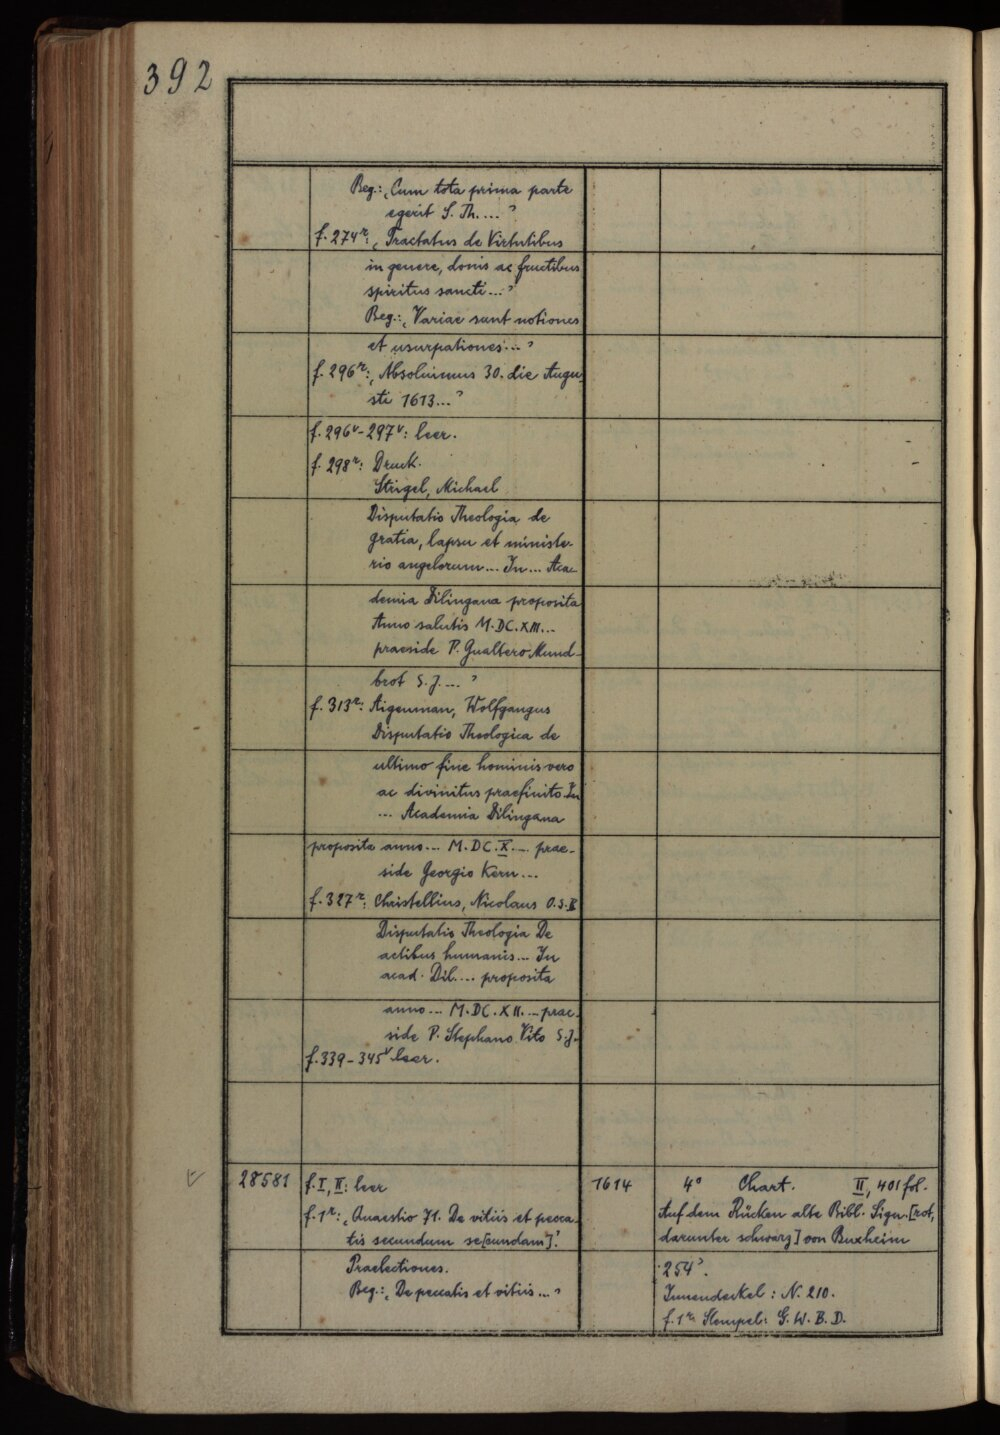 392
Beg.: ‚Cum tota prima parte
egerit S. Th. ... ’
f. 274r: ‚Tractatus de Virtutibus
in genere, donis ac fructibus
spiritus sancti ... ’
Beg.: ‚Variae sunt notiones
et usurpationes ... ’
f. 296r: ‚Absoluimus 30. die Augu-
sti 1613 ... ’
f. 296v - 297v: leer.
f. 298r: Druck.
Strigel, Michael
Disputatio Theologia de
gratia, lapsu et ministe-
rio angelorum ... In ... Aca-
demia Dilingana proposita
Anno salutis M.DC.XIII. ...
praeside P. Gualtero Mund-
brot S.J. ... ’
f. 313r: Aigenman, Wolfgangus
Disputatio Theologica de
ultimo fine hominis vero
ac divinitus praefinito. In
... Academia Dilingana
proposita anno ... M.DC.X. ... prae-
side Georgio Kern ...
f. 327r: Christellius, Nicolaus O.S.B
Disputatio Theologia De
actibus humanis ... In
acad. Dil. ... proposita
anno ... M.DC.XII. ... prae-
side P. Stephano Vito S.J.
f. 339 - 345v leer.
28581 f. I, II: leer 1614 4° Chart. II, 401 fol.
f. 1r: ‚Quaestio 71. De vitiis et pecca- Auf dem Rücken alte Bibl. Sign. [rot,
tis secundum se[cundam]’. darunter schwarz] von Buxheim
Praelectiones. ‚254’.
Beg.: ‚De peccatis et vitiis ... ’ Innendeckel: N. 210.
f. 1r Stempel: G.W.B.D.